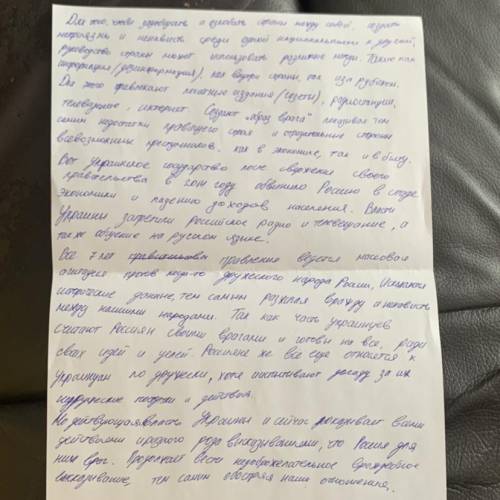 Для того, чтобы враждовать и ссорить страны между собой, создать
неприязнь и ненависть среди одной национальности к другой,
руководство страны может использовать различные методы. Такие как
информация/дезинформация), как внутри страны, так и за рубежом.
Для этого привлекают печатные издания (газеты), радиостанции,
телевидение, интернет. Создают "образ врага" показывая тем
самым недостатки правящего строя и отрицательные стороны
всевозможных преступников. как в экономике, так и в быту.
Вот Украинское государство после свержения своего
правительства в 2014 году обвинило Россию в спаде
экономики и падению доходов населения. Власти
Украины запретили Российское радио и телевещание, а
также общение на русском языке.
Все 7 лет правления ведется массовая
агитация против когда-то дружеского народа России, Искажая
исторические данные, тем самым разжигая вражду и ненависть
между нашими народами. Так как часть украинцев
считают Россиян своими врагами и готовы на все, ради
своих идей и целей. Россияне же все еще относятся к
Украинцам по дружески, хотя испытывают досаду за их
поступки и действия.
Но действующая власть Украины и сейчас показывает своими
действиями и разного рода высказываниями, что Россия для
них враг. Продолжает вести недоброжелательное враждебное
высказывание, тем самым обостряя наши отношения.